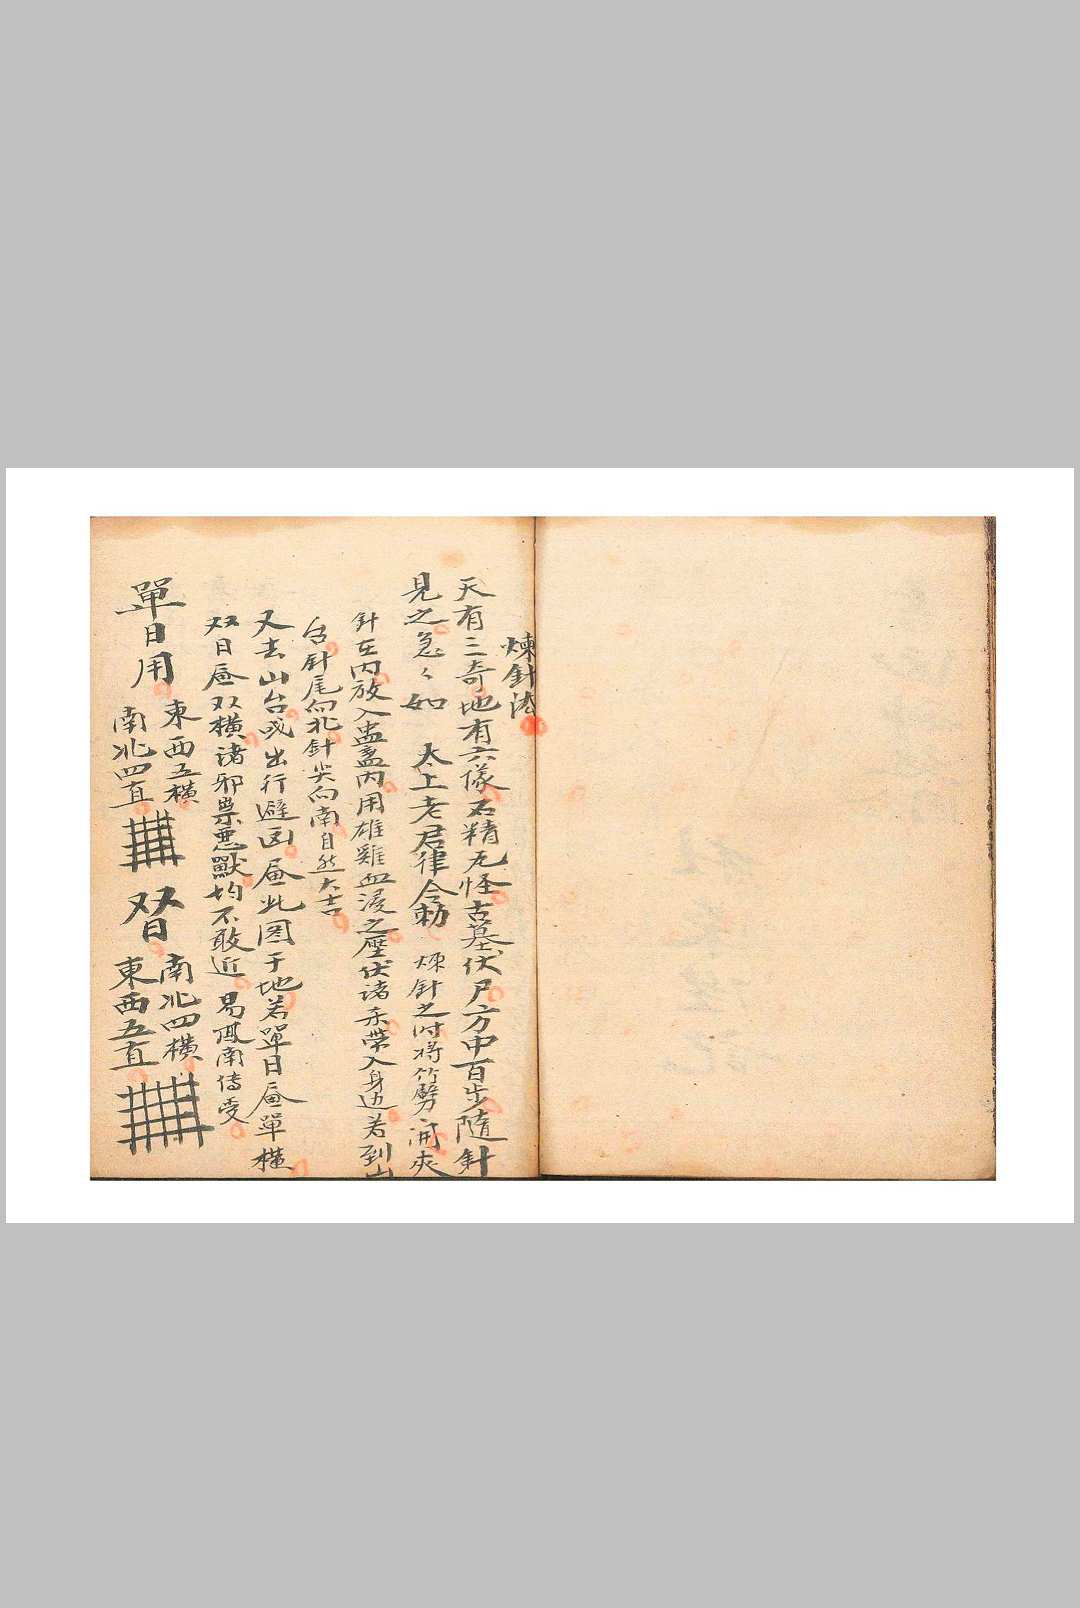 煉針法
天有三奇地有六儀石精无怪古墓伏尸方中百步隨針
見之急々如 太上老君律令勅 煉針之时将竹劈開夾
針在内放入盅盖内用雄雞血浸之壓伏諸杀帶入身边若到山
台針尾向北針尖向南自然大吉
又去山台或出行避凶 此图于地若單日 單橫
双日 双橫諸邪祟惡獸均不敢近 易鳳南传受
單日用
東西五橫
南北四直
双日
南北四橫
東西五直